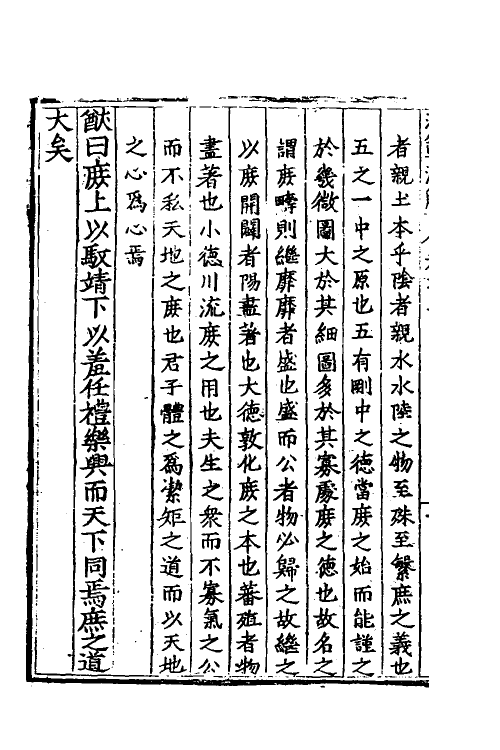 者親土本乎陰者親水水陸之物至殊至繁庶之義也
五之一中之原也五有剛中之德當庶之始而能謹之
於幾微圖大於其細圖多於其寡處庶之德也故名之
謂庶疇則繼靡靡者盛也盛而公者物必歸之故繼之
以庶開闢者陽盡著也大德敦化庶之本也蕃殖者物
盡著也小德川流庶之用也夫生之衆而不寡氣之公
而不私天地之庶也君子體之爲潔矩之道而以天地
之心爲心焉
猷曰庶上以馭靖下以羞任禮樂興而天下同焉庶之道
大矣